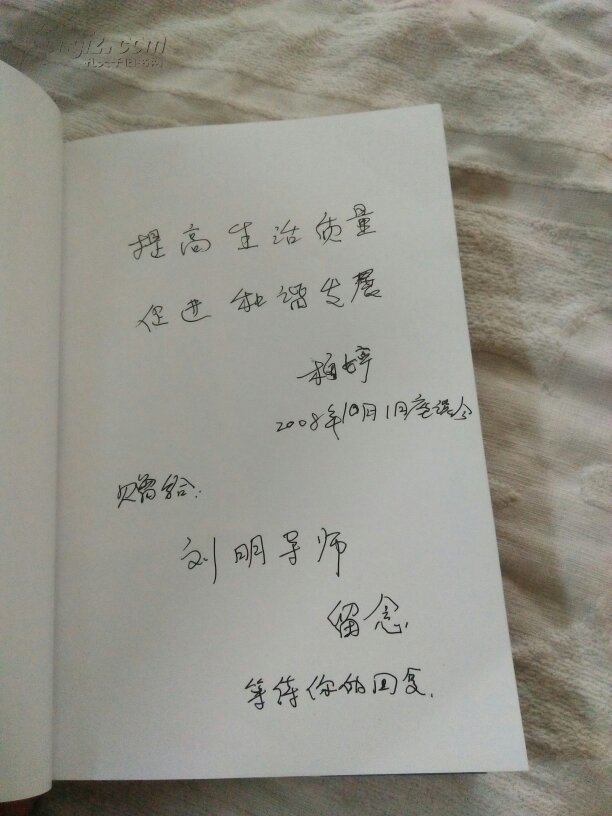 提高生活质量
促进和谐发展
梅婷
2008年10月1日座谈会
赠给:
刘明导师
留念
等待你的回复.